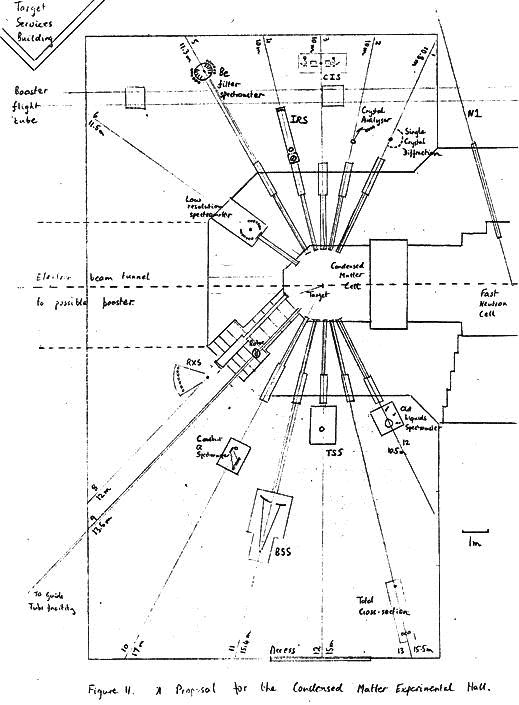 Target
Services
Building
Booster
flight
tube
5
11.3m
4
10m
3
10m
2
10m
1
10.8m
N1
Be
filter
spectrometer
CIS
IRS
Crystal
Analyser
Single
Crystal
Diffraction
6
11.5m
Low
resolution
spectrometer
Electron beam tunnel
to possible booster
Condensed
Matter
Cell
Target
Fast
Neutron
Cell
Rotor
RXS
Constant
Q
Spectrometer
TSS
Liquids
Spectrometer
12
10.5m
8
12m
9
13.6m
BSS
1m
To Guide
Tube facility
Total
Cross-section
10
17m
11
15.4m
12
15m
Access
13
15.5m
Figure 11. A Proposal for the Condensed Matter Experimental Hall.